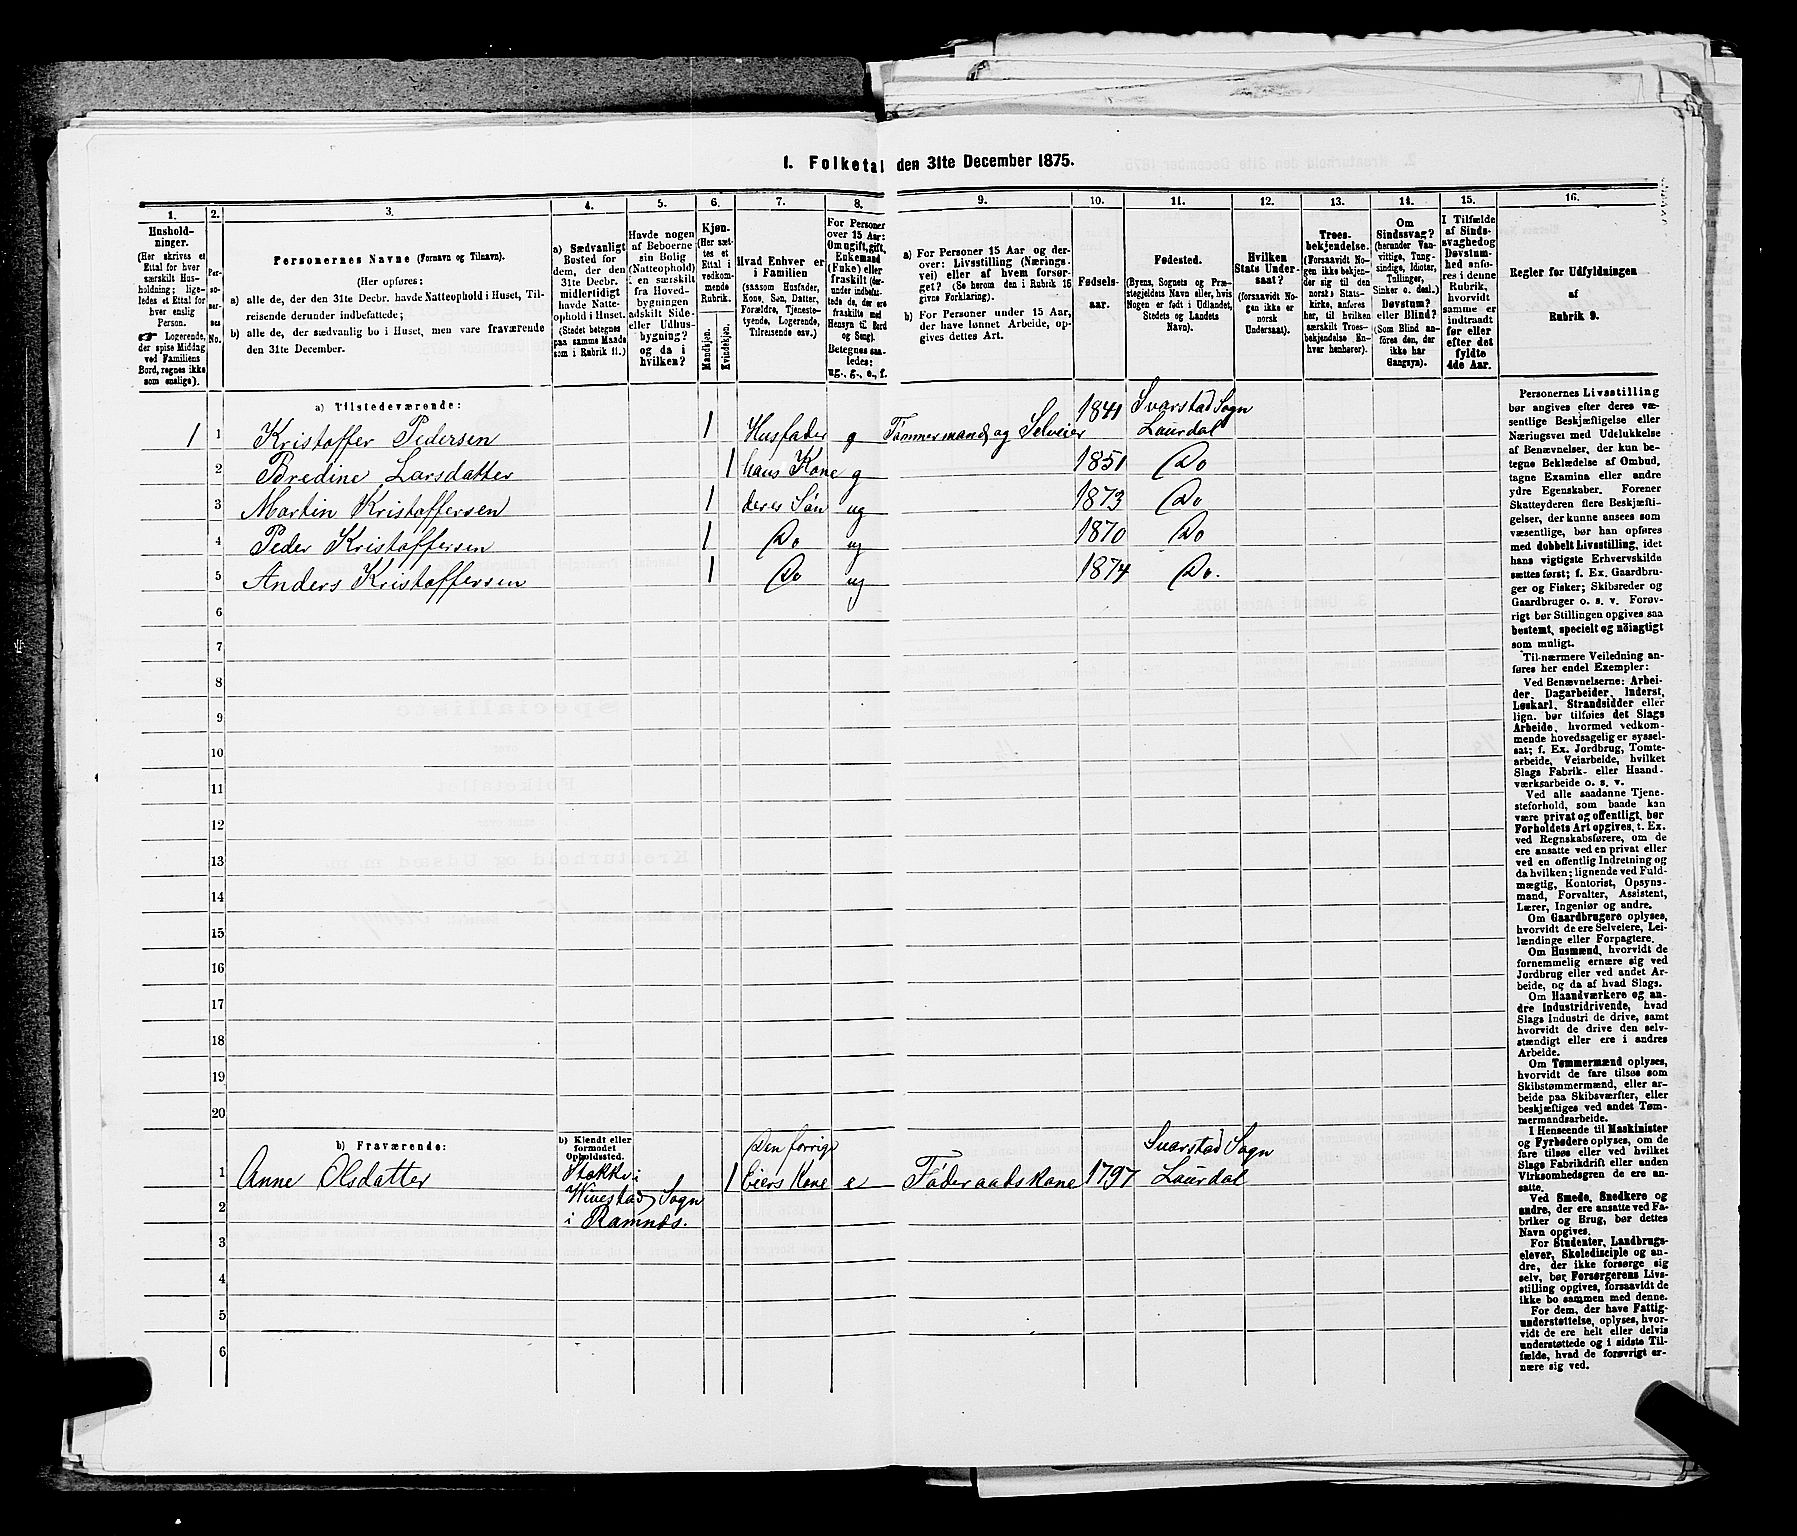 1. Folketal den 31te December 1875.
1.
Hushold-
ninger.
(Her skrives et
Ettal for hver
særskilt Hus-
holdning; lige-
ledes et Ettal for
hver enslig
Person.
☞ Logerende,
der spise Middag
ved Familiens
Bord, regnes ikke
som enslige).
2.
Per-
so-
ner-
nes
No.
3.
Personernes Navne (Fornavn og Tilnavn).
(Her opføres:
a) alle de, der den 31te Decbr. havde Natteophold i Huset, Til-
reisende derunder indbefattede;
b) alle de, der sædvanlig bo i Huset, men vare fraværende
den 31te December.
4.
a) Sædvanligt
Bosted for
dem, der den
31te Decbr.
midlertidigt
havde Natte-
ophold i Huset.
(Stedet betegnes
paa samme Maade
som i Rubrik 11.)
5.
Havde nogen
af Beboerne
sin Bolig
(Natteophold)
i en særskilt
fra Hoved-
bygningen
adskilt Side-
eller Udhus-
bygning?
og da i
hvilken?
6.
Kjøn.
(Her sæt-
tes et
Ettal i
vedkom-
mende
Rubrik.
Mandkjøn.
Kvindekjøn.
7.
Hvad Enhver er
i Familien
(saasom Husfader,
Kone, Søn, Datter,
Forældre, Tjeneste-
tyende, Logerende,
Tilreisende osv.)
8.
For Personer
over 15 Aar:
Om ugift, gift,
Enkemand
(Enke) eller
fraskilt (der-
under indbefat-
tede de, der ere
fraskilte med
Hensyn til Bord
og Seng).
Betegnes saa-
ledes:
ug., g., e., f.
9.
a) For Personer 15 Aar og der-
over: Livsstilling (Nærings-
vei) eller af hvem forsør-
get? (Se herom den i Rubrik 16
givne Forklaring).
b) For Personer under 15 Aar,
der have lønnet Arbeide, op-
gives dettes Art.
10.
Fødsels-
aar.
11.
Fødested.
(Byens, Sognets og Præ-
stegjeldets Navn eller, hvis
Nogen er født i Udlandet,
Stedets og Landets
Navn).
12.
Hvilken
Stats Under-
saat?
(forsaavidt No-
gen ikke er
norsk
Undersaat).
13.
Troes-
bekjendelse.
(Forsaavidt No-
gen ikke bekjen-
der sig til den
norske Stats-
kirke, anføres
her, til hvilken
særskilt Troes-
bekjendelse En-
hver henhører).
14.
Om
Sindssvag?
(herunder Van-
vittige, Tung-
sindige, Idioter,
Tullinger,
Sinker o. desl.)
Døvstum?
eller Blind?
(Som Blind an-
føres den, der
ikke har
Gangsyn).
15.
I Tilfælde
af Sinds-
svaghed og
Døvstum-
hed anfø-
res i denne
Rubrik,
hvorvidt
samme er
indtraadt
før eller
efter det
fyldte
4de Aar.
16.
Regler for Udfyldningen
af
Rubrik 9.
a) Tilstedeværende:
1 1 Kristoffer Pedersen 1 Husfader g Tømmermand og Selveier 1841 Svarstad Sogn Laurdal
2 Bredine Larsdatter 1 hans Kone g 1851 Do
3 Martin Kristoffersen 1 deres Søn ug 1873 Do
4 Peder Kristoffersen 1 Do ug 1870 Do
5 Anders Kristoffersen 1 Do ug 1874 Do.
6
7
8
9
10
11
12
13
14
15
16
17
18
19
20
b) Fraværende:
b) Kjendt eller
formodet
Opholdssted.
1 Anne Olsdatter Stokke i 1 Den forrige Eiers Kone e Føderaadskone 1797 Svarstad Sogn Laurdal
2 Wivestad Sogn
i Ramnæs.
3
4
5
6
Personernes Livsstilling
bør angives efter deres væ-
sentlige Beskjæftigelse eller
Næringsvei med Udelukkelse
af Benævnelser, der kun be-
tegne Beklædelse af Ombud,
tagne Examina eller andre
ydre Egenskaber. Forener
Skatteyderen flere Beskjæfti-
gelser, der kunne ansees som
væsentlige, bør han opføres
med dobbelt Livsstilling, idet
hans vigtigste Erhvervskilde
sættes først; f. Ex. Gaardbru-
ger og Fisker; Skibsreder og
Gaardbruger o. s. v. Forøv-
rigt bør Stillingen opgives saa
bestemt, specielt og nøiagtigt
som muligt.
Til nærmere Veiledning an-
føres her endel Exempler:
Ved Benævnelserne: Arbei-
der, Dagarbeider, Inderst,
Løskarl, Strandsidder eller
lign. bør tilføies det Slags
Arbeide, hvormed vedkom-
mende hovedsagelig er syssel-
sat; f. Ex. Jordbrug, Tomte-
arbeide, Veiarbeide, hvilket
Slags Fabrik- eller Haand-
værksarbeide o. s. v.
Ved alle saadanne Tjene-
steforhold, som baade kan
være privat og offentligt, bør
Forholdets Art opgives, t. Ex.
ved Regnskabsførere, om de
ere ansatte ved en privat eller
ved en offentlig Indretning og
da hvilken; lignende ved Fuld-
mægtig, Kontorist, Opsyns-
mand, Forvalter, Assistent,
Lærer, Ingeniør og andre.
Om Gaardbrugere oplyses,
hvorvidt de ere Selveiere, Lei-
lændinge eller Forpagtere.
Om Husmænd, hvorvidt de
fornemmelig ernære sig ved
Jordbrug eller ved andet Ar-
beide, og da af hvad Slags.
Om Haandværkere og an-
dre Industridrivende, hvad
Slags Industri de drive, samt
hvorvidt de drive den selv-
stændigt eller ere i andres
Arbeide.
Om Tømmermænd oplyses,
hvorvidt de fare tilsøs som
Skibstømmermænd, eller ar-
beide paa Skibsværfter, eller
beskjæftiges ved andet Tøm-
mermandsarbeide.
I Henseende til Maskinister
og Fyrbødere oplyses, om de
fare tilsøs eller ved hvilket
Slags Fabrikdrift eller anden
Virksomhedsgren de ere an-
satte.
Ved Smede, Snedkere og
andre, der ere ansatte ved Fa-
briker og Brug, bør dettes
Navn opgives.
For Studenter, Landbrugs-
elever, Skoledisciple og an-
dre, der ikke forsørge sig
selv, bør Forsørgerens Livs-
stilling opgives, forsaavidt de
ikke bo sammen med denne.
For dem, der have Fattig-
understøttelse, oplyses, hvor-
vidt de ere helt eller delvis
understøttede og i sidste Til-
fælde, hvad de forøvrigt er-
nære sig ved.